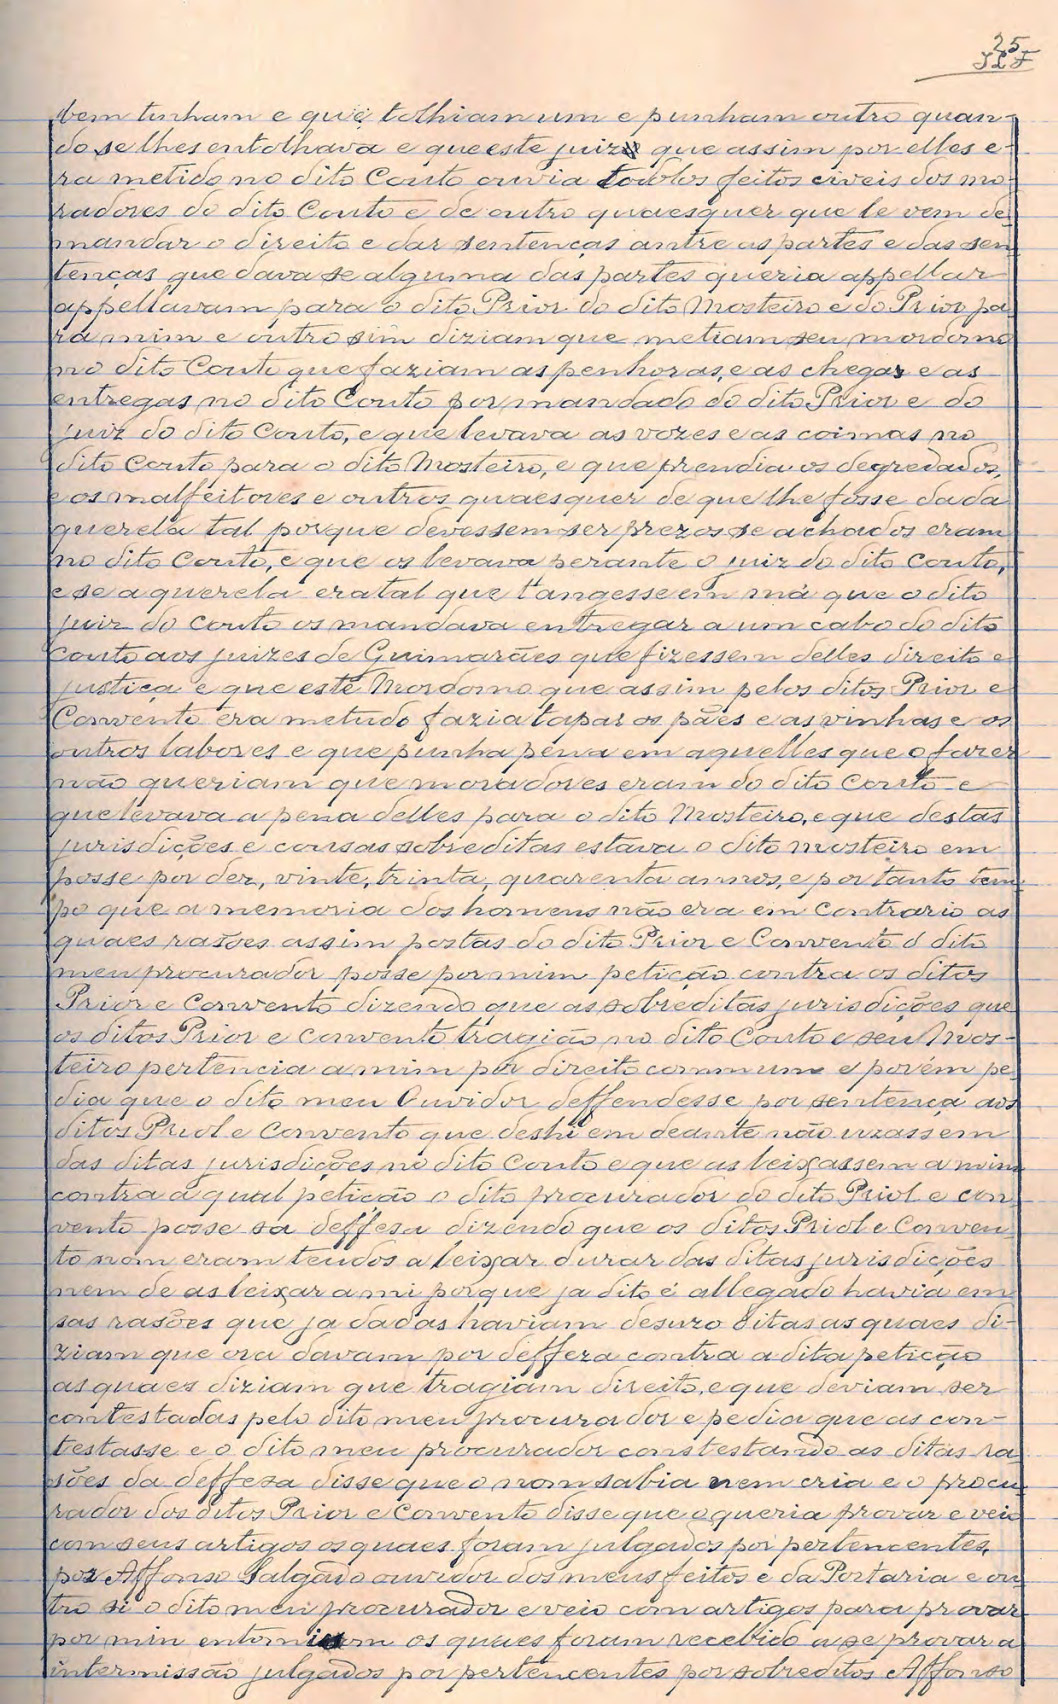 25
bem tinham e que tolhiam um e punham outro quan-
do se lhes entolhava e que este juiz que assim por elles e-
ra metido no dito Couto ouvia todolos feitos civeis dos mo-
radores do dito Couto e de outro quaesquer que le vem de-
mandar o direito e dar sentenças antre as partes e das sen
tenças que dava se alguma das partes queria appellar
appellavam para o dito Prior do dito Mosteiro e do Prior pa-
ra mim e outro sim diziam que metiam seu mordomo
no dito Couto que faziam as penhoras, e as chegas e as
entregas no dito Couto por mandado do dito Prior e do
juiz do dito Couto, e que levava as vozes e as coimas no
dito Couto para o dito Mosteiro, e que prendia os degredados,
e os malfeitores e outros quaesquer de que lhe fosse dada
querela tal porque devessem ser prezos se achados eram
no dito Couto, e que os levava perante o juiz do dito Couto,
e se a querela era tal que tangesse em má que o dito
juiz do Couto os mandava entregar a um cabo do dito
Couto aos juizes de Guimarães que fizessem delles direito e
justiça e que este Mordomo que assim pelos ditos Prior e
Convento era metudo fazia tapar os pães e as vinhas e os
outros labores e que punha pena em aquelles que o fazer
não queriam que moradores eram do dito Couto e
que levava a pena delles para o dito Mosteiro, e que destas
jurisdições e cousas sobreditas estava o dito mosteiro em
posse por dez, vinte, trinta, quarenta annos, e por tanto tem
po que a memoria dos homens não era em contrario as
quaes rasões assim postas do dito Prior e Convento o dito
meu procurador posse por mim petição contra os ditos
Prior e Convento dizendo que as sobreditas jurisdições que
os ditos Prior e convento tragião no dito Couto e seu Mos-
teiro pertencia a mim por direito commum e porém pe-
dia que o dito meu Ouvidor deffendesse por sentença aos
ditos Priol e Convento que deshi em deante não uzassem
das ditas jurisdições no dito Couto e que as leixassem a mim
contra a qual petição o dito procurador do dito Priol e con
vento posse sa deffesa dizendo que os ditos Priol e Conven
to nom eram teudos a leixar durar das ditas jurisdições
nem de as leixar a mi porque ja dito é allegado havia em
sas rasões que ja dadas haviam desuzo ditas as quaes di-
ziam que ora davam por deffeza contra a dita petição
as quaes diziam que tragiam direito, e que deviam ser
contestadas pelo dito meu procurador e pedia que as con-
testasse e o dito meu procurador constestando as ditas ra
sões da deffeza disse que o nom sabia nem cria e o procu-
rador dos ditos Prior e Convento disse que o queria provar e veio
com seus artigos os quaes foram julgados por pertencentes,
por Affonso Salgado ouvidor dos meus feitos e da Portaria e ou
tro si o dito meu procurador e veio com artigos para provar
por min os quaes foram recebido a se provar a
intermissão julgados por pertencentes por sobreditos Affonso